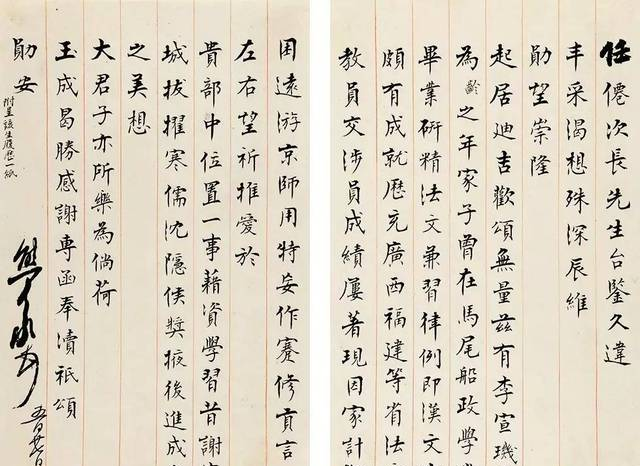 任僊次長先生台鑒久違
丰采渴想殊深辰維
勛望崇隆
起居迪吉歡頌無量茲有李宣璣
為齡之年家子曾在馬尾船政學
畢業研精法文兼習律例即漢文
頗有成就歷充廣西福建等省法
教員交涉員成績屢著現因家計
困遠游京師用特安作蹇修貢言
左右望祈推愛於
貴部中位置一事藉資學習昔謝
城拔擢寒儒沈隱侯獎掖後進成
之美想
大君子亦所樂為倘荷
玉成曷勝感謝專函奉瀆祇頌
勛安
附呈該生履歷一紙